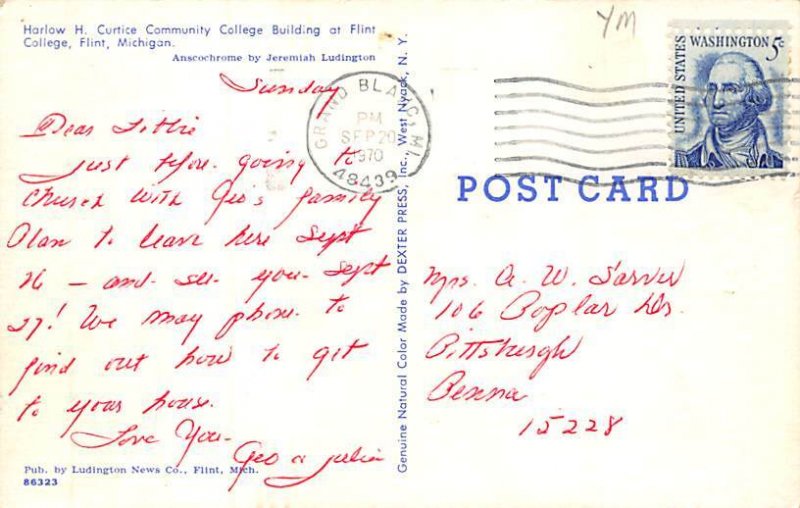 Harlow H. Curtice Community College Building at Flint
College, Flint, Michigan.
Anscochrome by Jeremiah Ludington
Sunday
Dear
Just before going to
Church with Geo's family
Plan to leave here Sept
26 - and - see you - Sept
27! We may phone to
find out how to get
to your house.
Love You -
Geo a Julia
Pub. by Ludington News Co., Flint, Mich.
86323
Genuine Natural Color Made by DEXTER PRESS, Inc., West Nyack, N. Y.
YM
GRAND BLANC, MI.
PM
SEP 20
1970
48439
UNITED STATES
WASHINGTON 5c
POST CARD
Mrs. A. W. Sarver
106 Poplar Dr.
Pittsburgh
Penna
15228